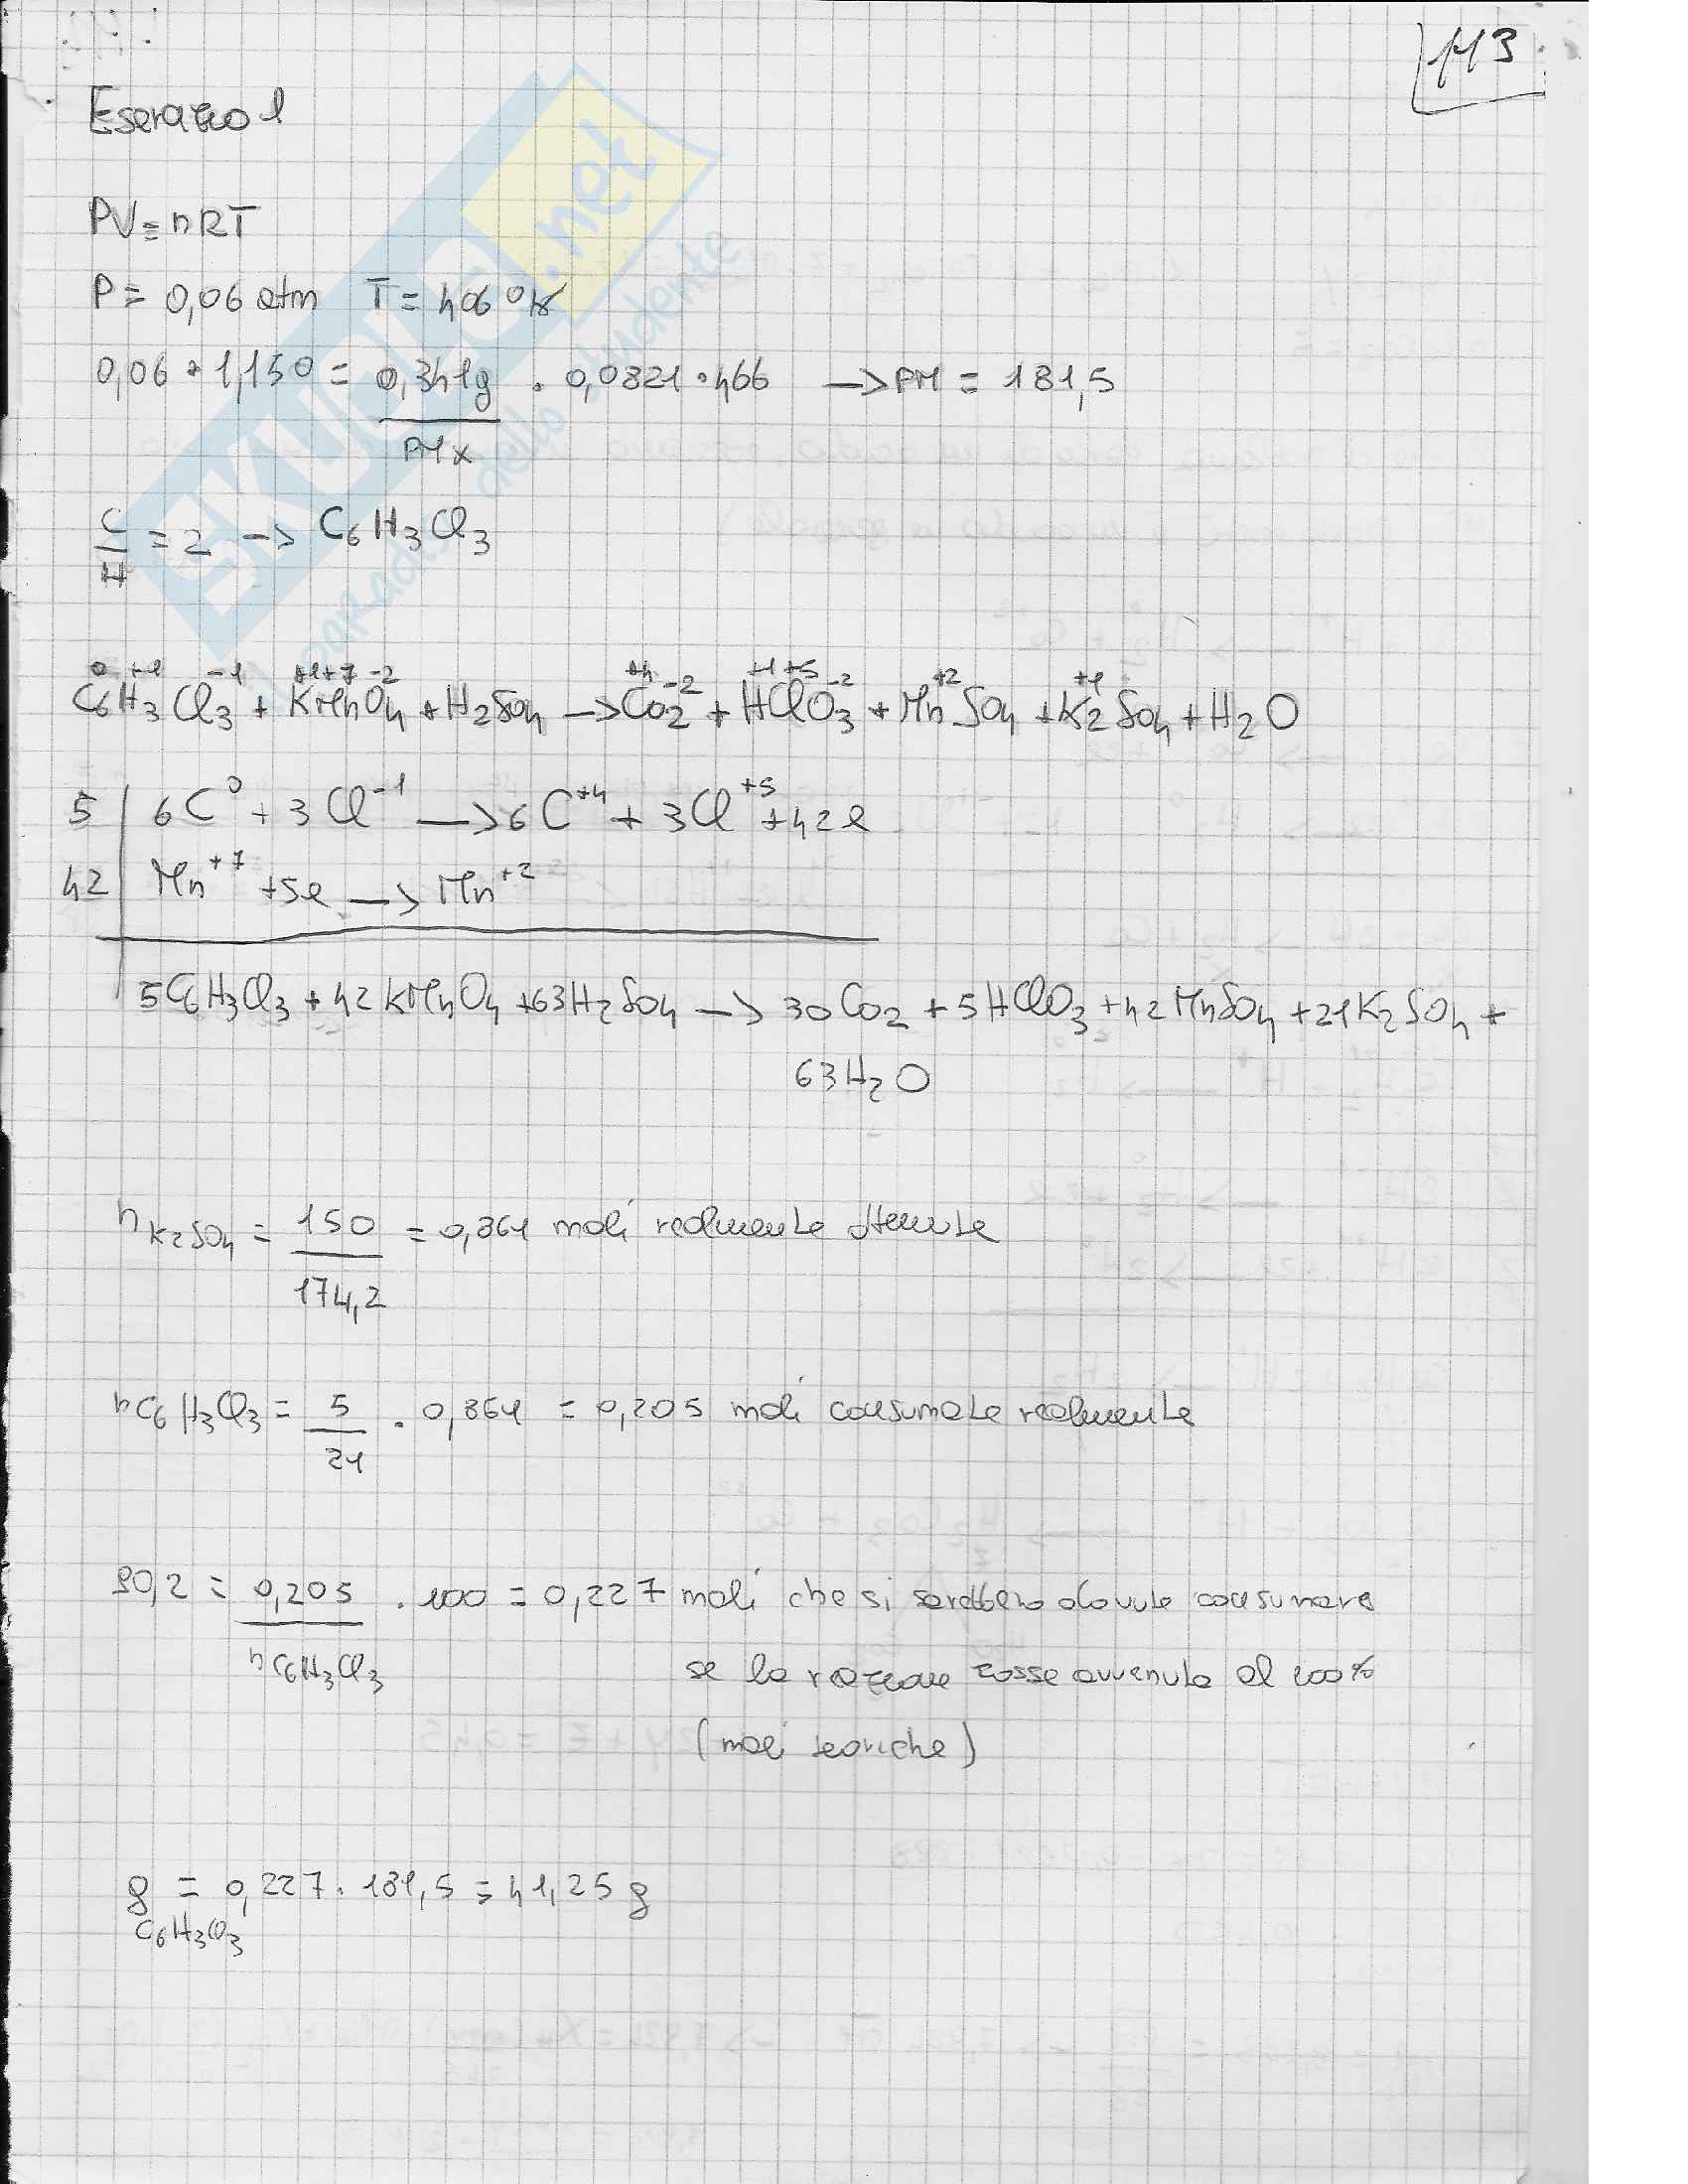 113
Esercizio 1
PV = nRT
P = 0,06 atm T = 406 °K
0,06 · 1,150 = 0,341g / PMx · 0,0821 · 466 —> PM = 181,5
C/H = 2 —> C6H3Cl3
0 +1 -1 +1 +7 -2 +4 -2 +1 +5 -2 +2 +1
C6H3Cl3 + KMnO4 + H2SO4 —> CO2 + HClO3 + MnSO4 + K2SO4 + H2O
5 | 6C^0 + 3Cl^-1 —> 6C^+4 + 3Cl^+5 + 42e
42 | Mn^+7 + 5e —> Mn^+2
5C6H3Cl3 + 42KMnO4 + 63H2SO4 —> 30CO2 + 5HClO3 + 42MnSO4 + 21K2SO4 +
63H2O
nK2SO4 = 150 / 174,2 = 0,861 moli realmente ottenute
nC6H3Cl3 = 5 / 21 · 0,861 = 0,205 moli consumate realmente
90,2 = 0,205 / nC6H3Cl3 · 100 = 0,227 moli che si sarebbero dovute consumare
se la reazione fosse avvenuta al 100%
(moli teoriche)
g C6H3Cl3 = 0,227 · 181,5 = 41,25 g
SKUOLA.net
dello studente